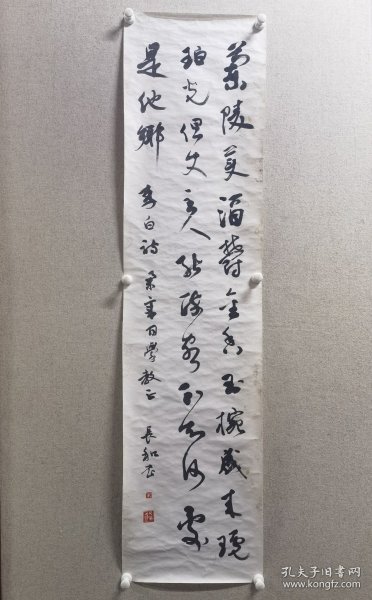 蘭陵美酒鬱金香玉椀盛来琥
珀光但使主人能醉客不知何處
是他鄉 李白詩 同學教正 長和書
孔夫子旧书网
www.kongfz.com